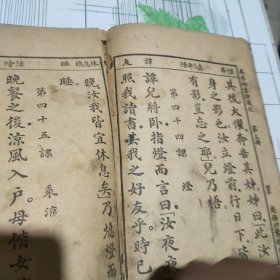 其後大懼奔告其姊姊曰此汝
身之影也汝立燈前行日下皆
有影豈忘之耶兒乃悟
第四十四課 燈
譚兒將卧指燈而言曰汝夜夜
照我讀書真我之好友乎時已
晚汝我皆宜休息矣乃熄燈而
睡
第四十五課 乘涼
晚餐之後涼風入戶母偕女